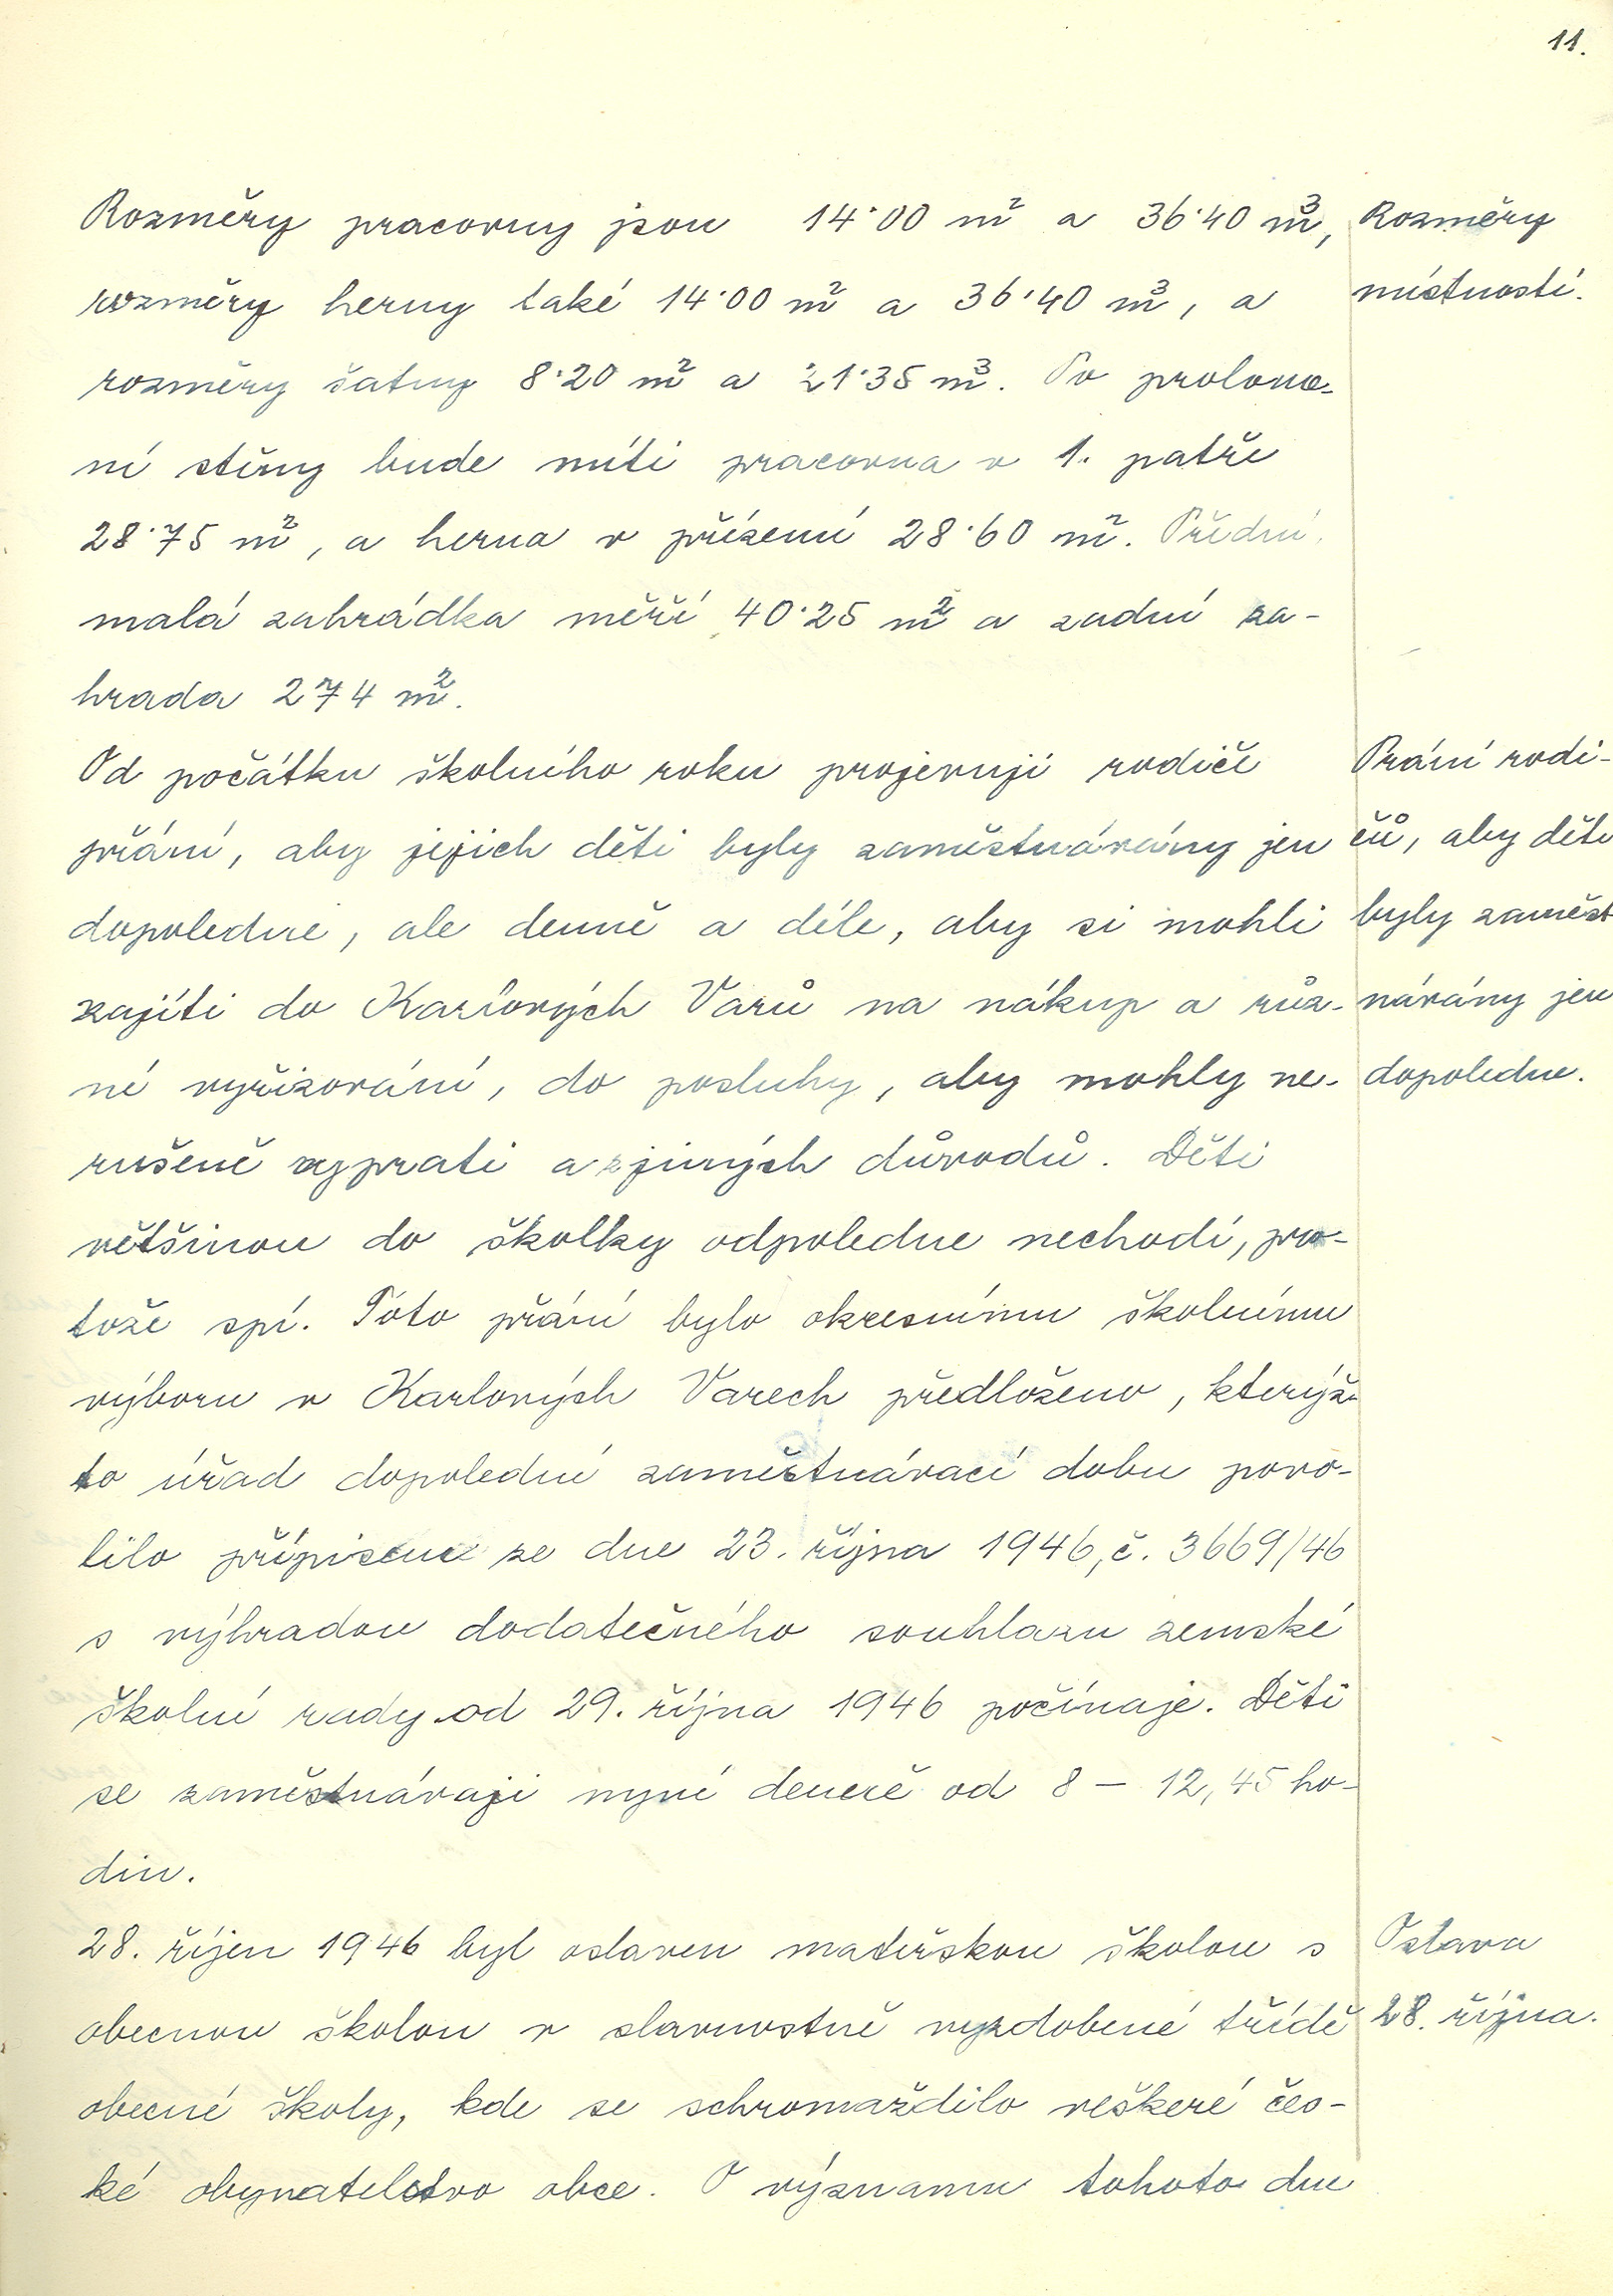 11.
Rozměry pracovny jsou 14·00 m² a 36·40 m³,
rozměry herny také 14·00 m² a 36·40 m³, a
rozměry šatny 8·20 m² a 21·35 m³. Po proloma-
ní stěny bude míti pracovna v 1. patře
28·75 m², a herna v přízemí 28·60 m². Přední
malá zahrádka měří 40·25 m² a zadní za-
hrada 274 m².
Rozměry
místností.
Od počátku školního roku projevují rodiče
přání, aby jejich děti byly zaměstnávány jen
dopoledne, ale denně a déle, aby si mohli
zajíti do Karlových Varů na nákup a růz-
né vyřizování, do posluhy, aby mohly ne-
rušeně vyprati a z jiných důvodů. Děti
většinou do školky odpoledne nechodí, pro-
tože spí. Toto přání bylo okresnímu školnímu
výboru v Karlových Varech předloženo, kterýž-
to úřad dopolední zaměstnávací dobu povo-
lilo přípisem ze dne 23. října 1946, č. 3669/46
s výhradou dodatečného souhlasu zemské
školní rady od 29. října 1946 počínaje. Děti
se zaměstnávají nyní denně od 8 – 12,45 ho-
din.
Přání rodi-
čů, aby děti
byly zaměst
návány jen
dopoledne.
28. říjen 1946 byl oslaven mateřskou školou s
obecnou školou v slavnostně vyzdobené třídě
obecné školy, kde se schromaždilo veškeré čes-
ké obyvatelstvo obce. O významu tohoto dne
Oslava
28. října.